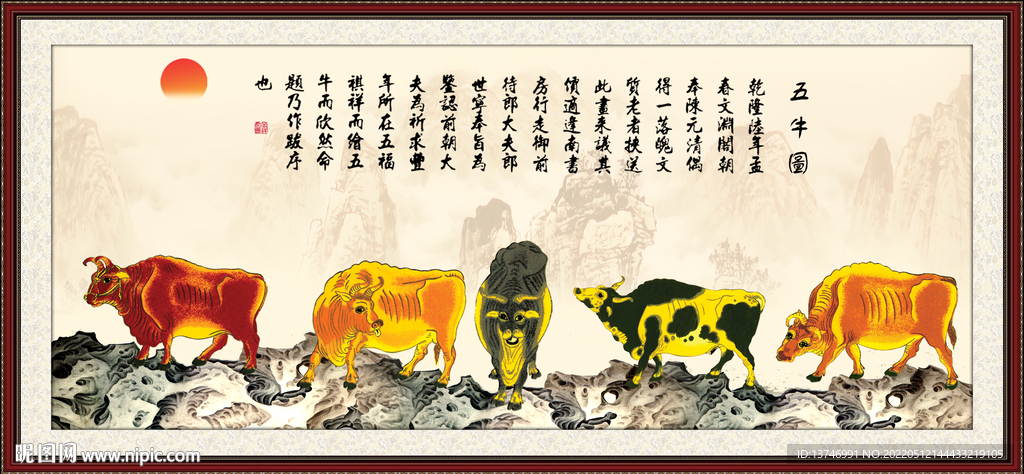 五牛圖
乾隆陸年孟
春文淵閣朝
奉陳元清偶
得一落魄文
質老者挾送
此畫来議其
價適逢南書
房行走御前
待郎大夫郎
世寧奉旨為
鑒認前朝大
夫為祈求豐
年所在五福
祺祥而繪五
牛而欣然命
題乃作跋序
也
昵图网 www.nipic.com
ID:13746991 NO:20220512144433219105